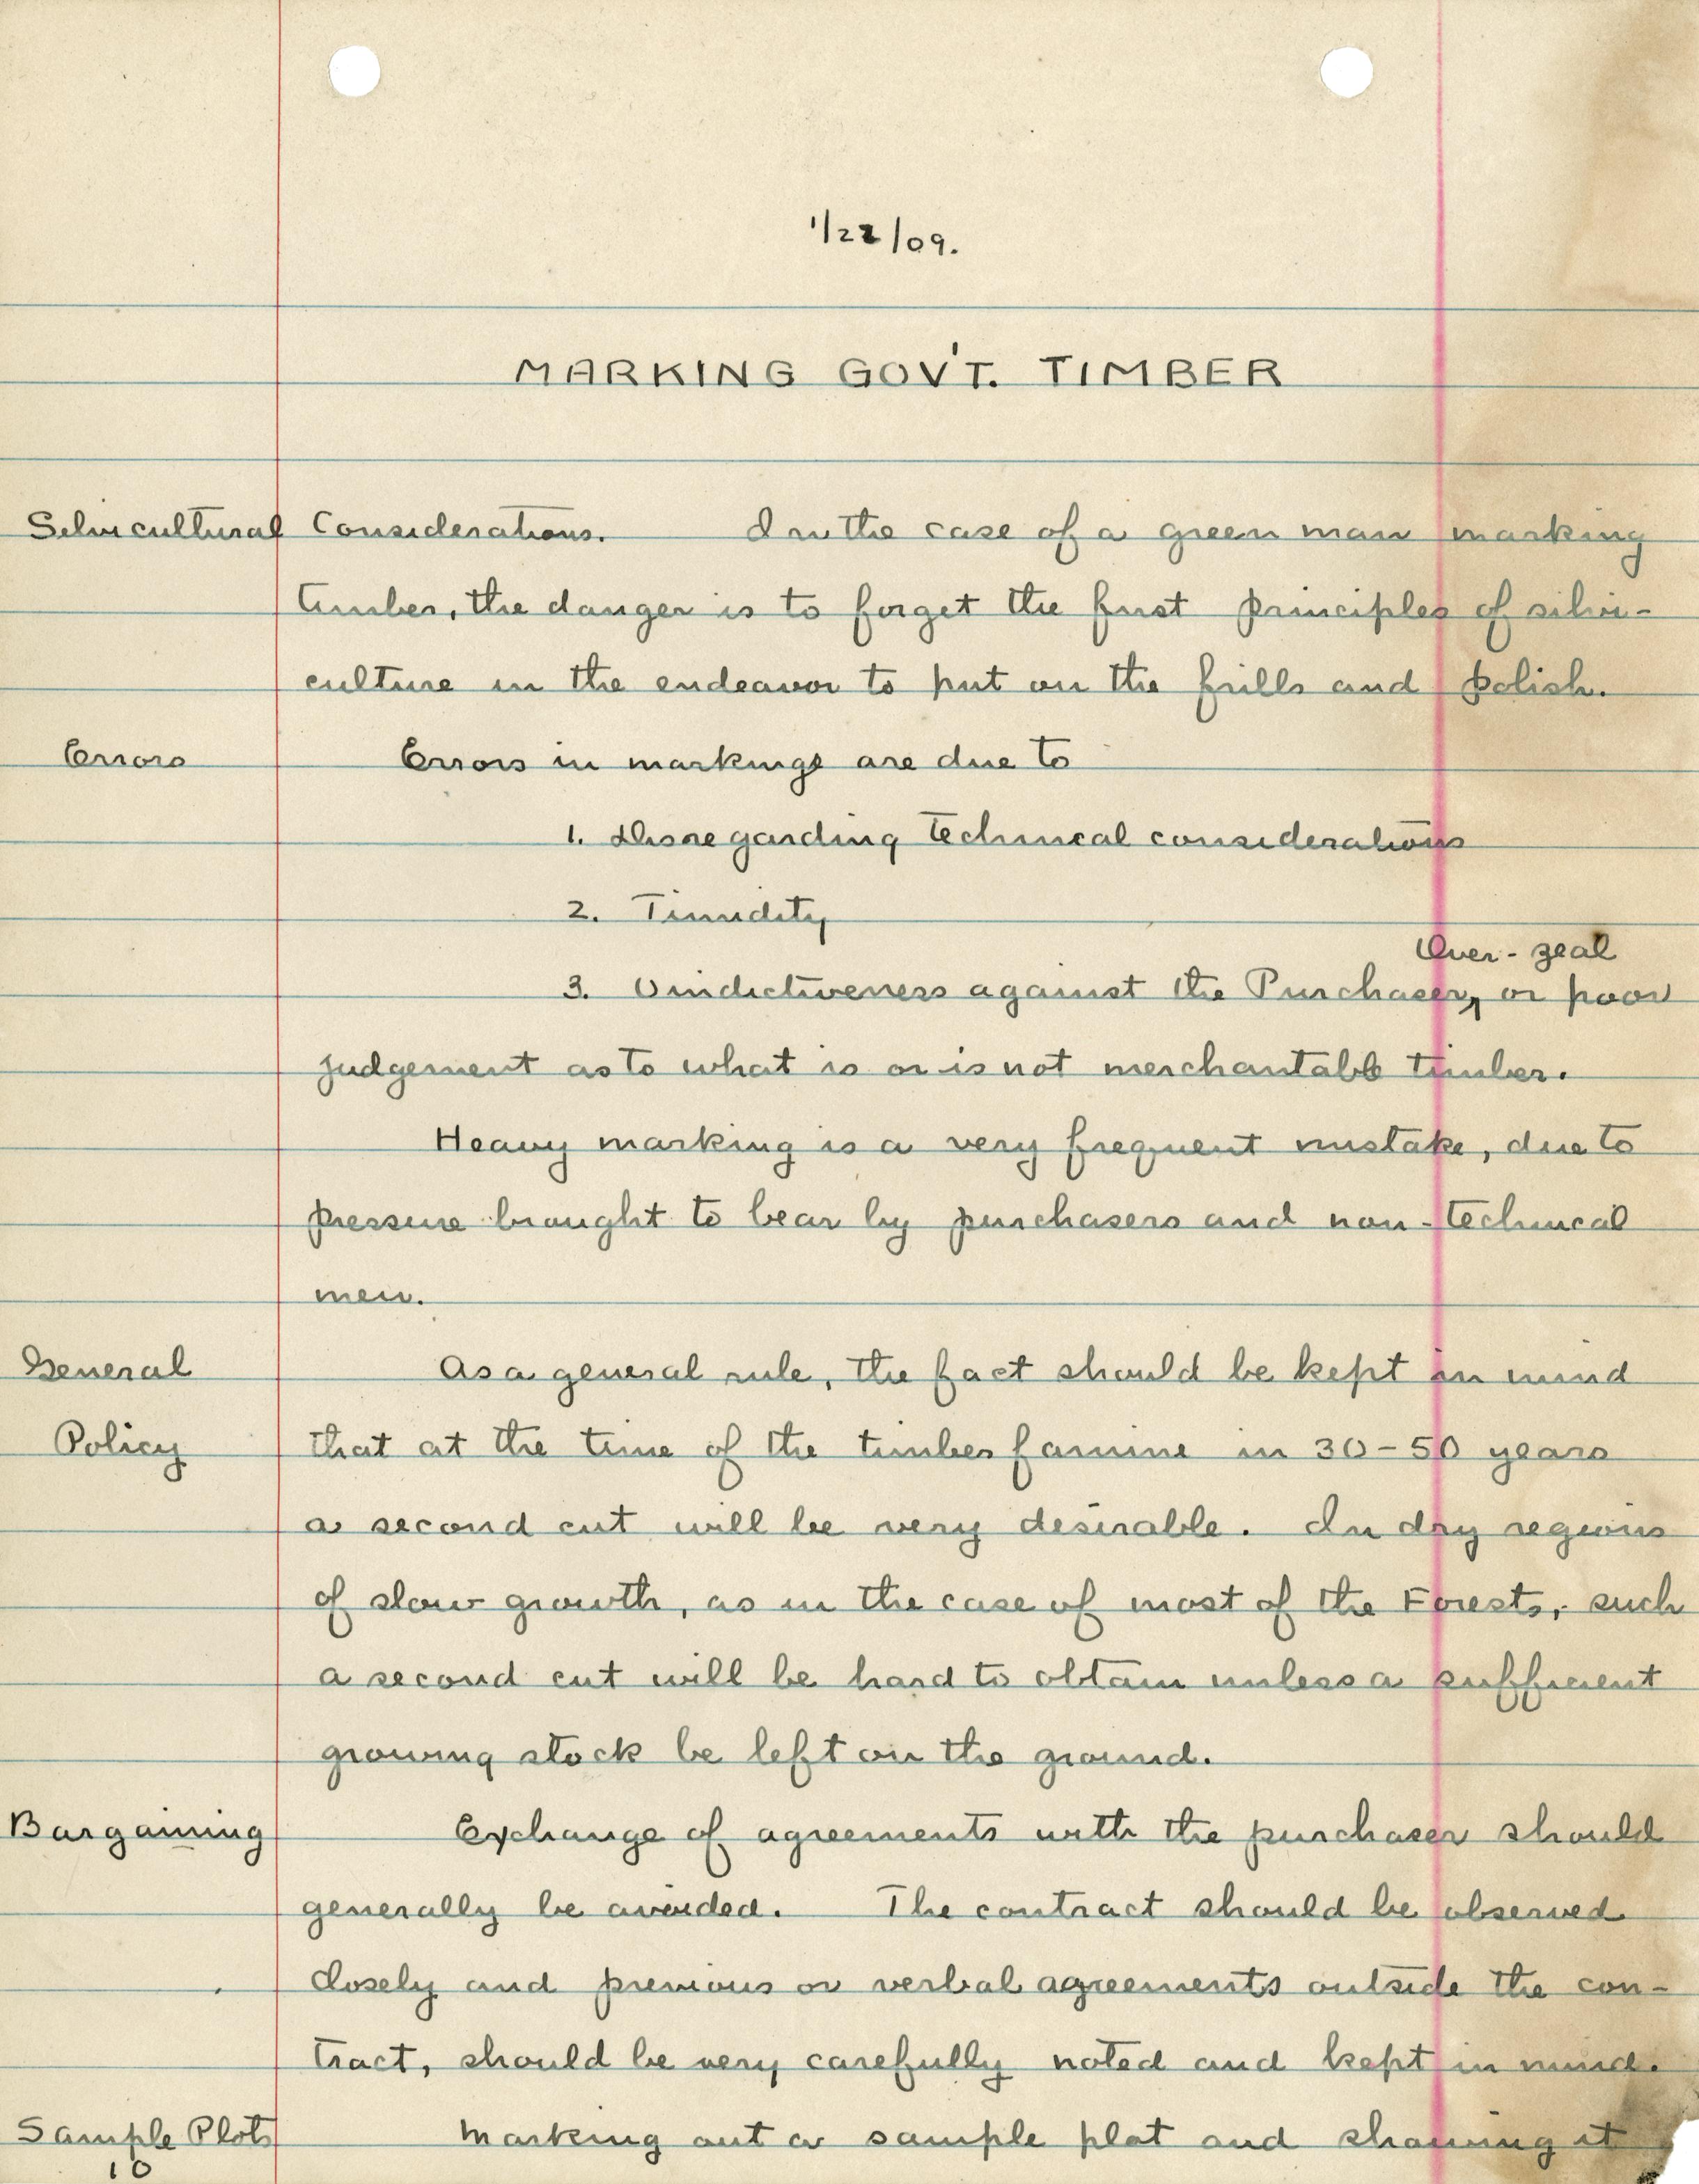 1/22/09.
MARKING GOV'T. TIMBER
Silvicultural Considerations. In the case of a green man marking
timber, the danger is to forget the first principles of silvi-
culture in the endeavor to put on the frills and polish.
Errors Errors in markings are due to
1. Disregarding technical considerations
2. Timidity
Over-zeal
3. Vindictiveness against the Purchaser, or poor
judgement as to what is or is not merchantable timber.
Heavy marking is a very frequent mistake, due to
pressure brought to bear by purchasers and non-technical
men.
General As a general rule, the fact should be kept in mind
Policy that at the time of the timber famine in 30-50 years
a second cut will be very desirable. In dry regions
of slow growth, as in the case of most of the Forests, such
a second cut will be hard to obtain unless a sufficient
growing stock be left on the ground.
Bargaining Exchange of agreements with the purchaser should
generally be avoided. The contract should be observed
closely and previous or verbal agreements outside the con-
tract, should be very carefully noted and kept in mind.
Sample Plots Marking out a sample plot and showing it
10